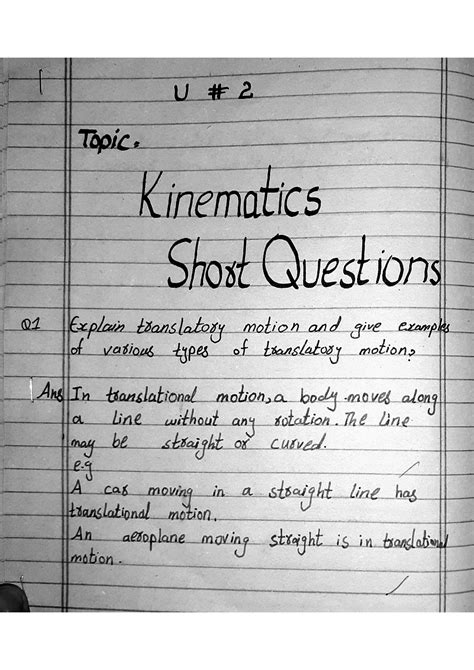 U # 2
Topic.
Kinematics
Short Questions
Q1 Explain translatory motion and give examples
of various types of translatory motion?
Ans In translational motion, a body moves along
a line without any rotation. The line
may be straight or curved.
e.g
A car moving in a straight line has
translational motion.
An aeroplane moving straight is in translational
motion.